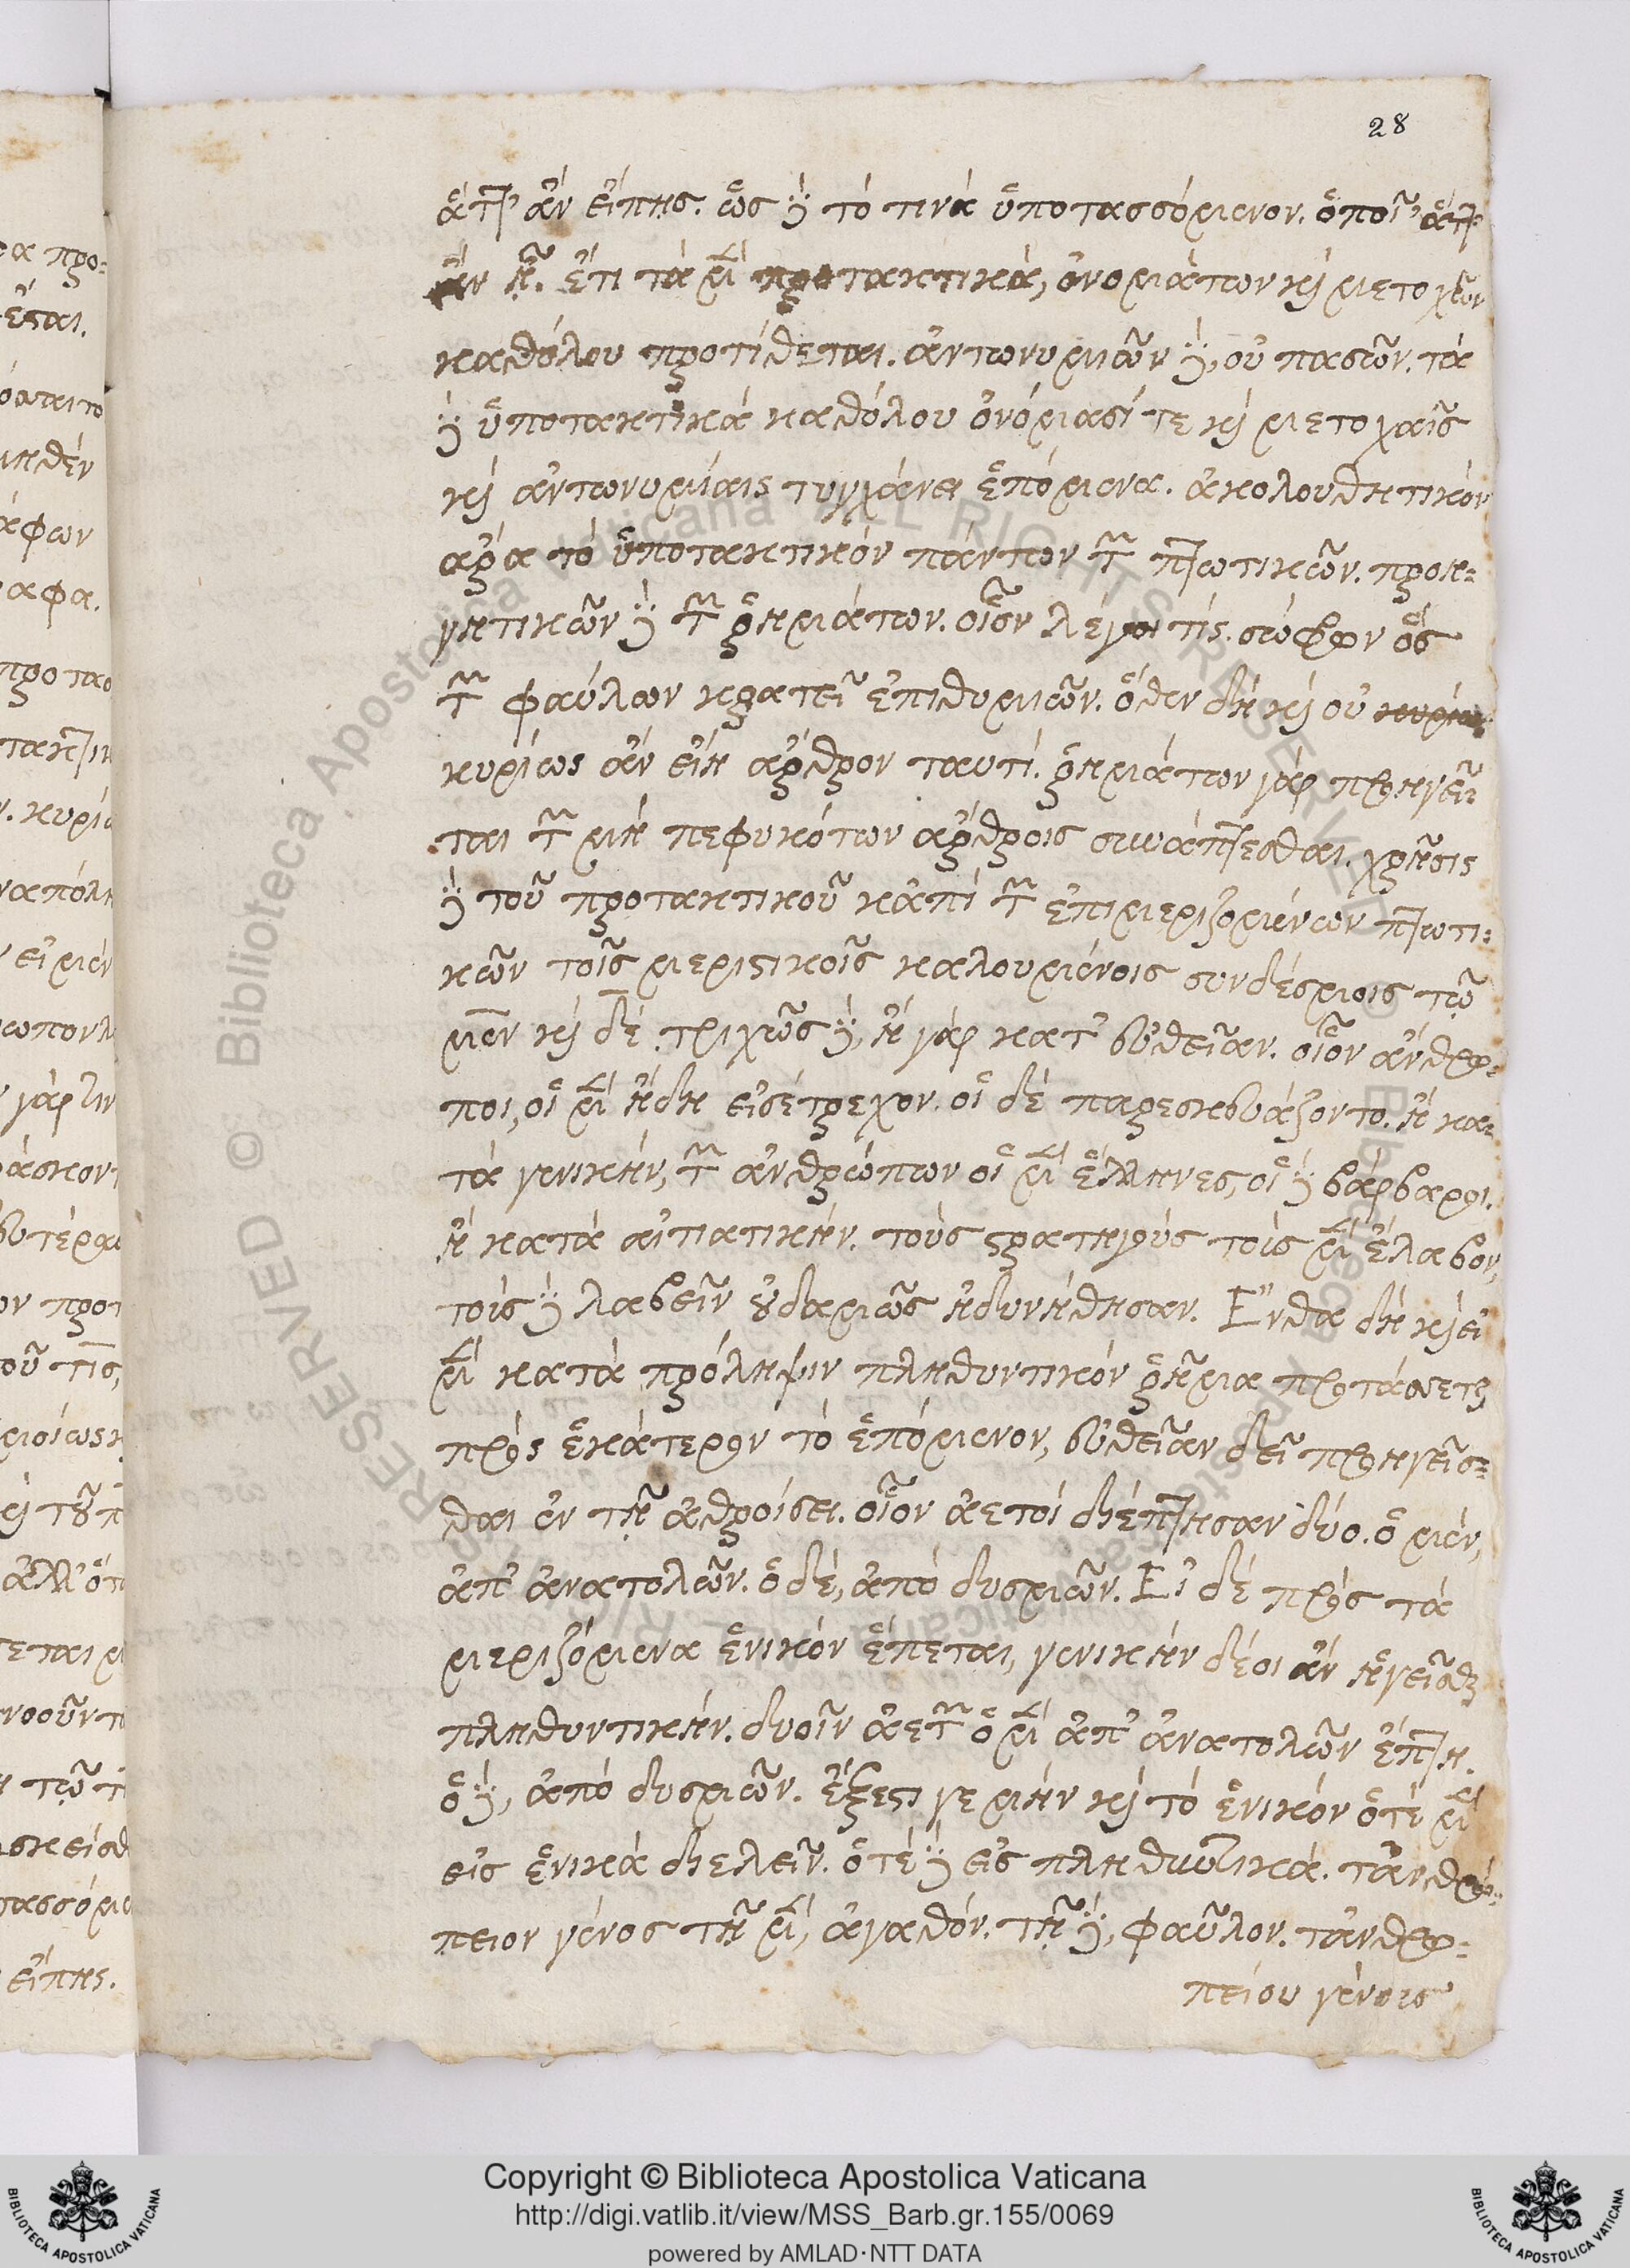 28
ἅττ' ἂν εἴπῃς. ὡς δὲ τὸ τινὰ ὑποτασσόμενον. ὁποῖ' ἅττ'
ἂν ᾖ. ἔτι τὰ μὲν προτακτικὰ, ὀνομάτων καὶ μετοχῶν
καθόλου προτίθεται. ἀντωνυμιῶν δὲ, οὐ πασῶν. τὰ
δὲ ὑποτακτικὰ καθόλου ὀνόμασί τε καὶ μετοχαῖς
καὶ ἀντωνυμίαις τυγχάνει ἑπόμενα. ἀκολουθητικὸν
ἄρα τὸ ὑποτακτικὸν πάντων τῶν πτωτικῶν. προη-
γητικῶν δὲ τῶν ῥημάτων. οἷον λέγοι τίς. σώφρων ὃς
τῶν φαύλων κρατεῖ ἐπιθυμιῶν. ὅθεν δὴ καὶ οὐ κυρίως
κυρίως ἂν εἴη ἄρθρον ταυτί. ῥημάτων γὰρ προηγεῖ-
ται τῶν μὴ πεφυκότων ἄρθροις συνάπτεσθαι. χρῆσις
δὲ τοῦ προτακτικοῦ κἀπὶ τῶν ἐπιμεριζομένων πτωτι-
κῶν τοῖς μεριστικοῖς καλουμένοις συνδέσμοις τῷ
μὲν καὶ δέ. τριχῶς δὲ, ἢ γὰρ κατ' εὐθεῖαν. οἷον ἄνθρω-
ποι, οἱ μὲν ἤδη εἰσέτρεχον. οἱ δὲ παρεσκευάζοντο. ἢ κα-
τὰ γενικήν, τῶν ἀνθρώπων οἱ μὲν ἕλληνες, οἱ δὲ βάρβαροι.
ἢ κατὰ αἰτιατικήν. τοὺς στρατηγοὺς τοὺς μὲν ἔλαβον,
τοὺς δὲ λαβεῖν οὐδαμῶς ἠδυνήθησαν. Ἔνθα δὴ καὶ εἰ
μὲν κατὰ πρόληψιν πληθυντικὸν ῥῆμα προτάσσεται
πρὸς ἑκάτερον τὸ ἑπόμενον, εὐθεῖαν δεῖ προηγεῖσ-
θαι ἐν τῇ ἀθροίσει. οἷον ἀετοὶ διέπτησαν δύο. ὁ μὲν,
ἀπ' ἀνατολῶν. ὁ δὲ, ἀπὸ δυσμῶν. Εἰ δὲ πρὸς τὰ
μεριζόμενα ἑνικὸν ἕπεται, γενικὴν δέοι ἂν ἡγεῖσθαι
πληθυντικήν. δυοῖν ἀετῶν ὁ μὲν ἀπ' ἀνατολῶν ἔπτη.
ὁ δὲ, ἀπὸ δυσμῶν. ἔξεστι γε μὴν καὶ τὸ ἑνικὸν ὁτὲ μὲν
εἰς ἑνικὰ διελεῖν. ὁτὲ δὲ εἰς πληθυντικά. τἀνθρώ-
πειον γένος τῇ μὲν, ἀγαθόν. τῇ δὲ, φαῦλον. τἀνθρω-
πείου γένους
Copyright © Biblioteca Apostolica Vaticana
http://digi.vatlib.it/view/MSS_Barb.gr.155/0069
powered by AMLAD·NTT DATA